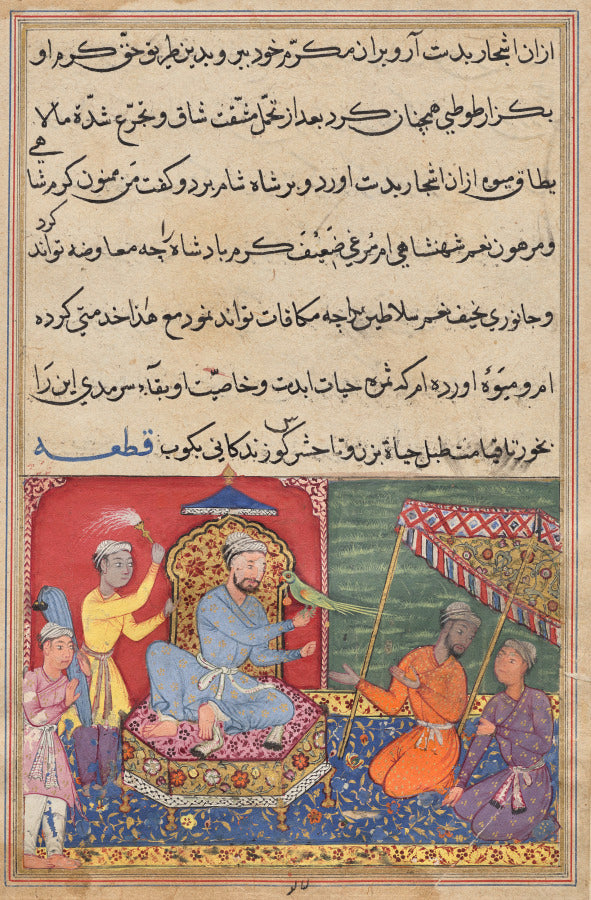 ازان اشجار بدست آرو بران مکرّم خود ببر و بدین طریق حقّ کرم او
بگزار طوطی همچنان کرد بعد از تحمّل مشقّت شاق و تجرّع شدّة مالا
یطاق میوه ازان اشجار بدست اورد و بر شاه شام برد و کفت من ممنون کرم شاهی
و مرهون نعم شهنشاهی ام مرغی ضعیف کرم بادشاه را چه معاوضه تواند کرد
و جانوری نحیف نعم سلاطین را چه مکافات تواند نمود مع هذا خدمتی کرده
ام و میوۀ اورده ام که ثمرۀ حیات ابدست و خاصیّت او بقاء سرمدی این را
بخور تا قیامت طبل حیاة بزن و تا حشر کوس زندکانی بکوب قطعه